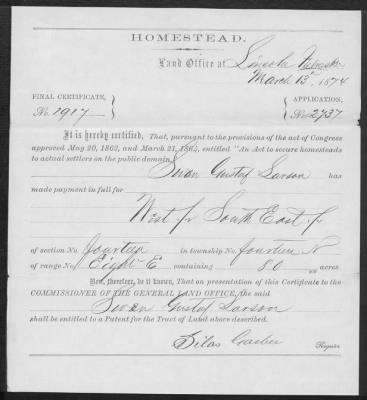 HOMESTEAD.
Land Office at Lincoln Nebraska
March 13, 1874
FINAL CERTIFICATE,
No. 1917
APPLICATION,
No. 2737
It is hereby certified, That, pursuant to the provisions of the act of Congress
approved May 20, 1862, and March 21, 1864, entitled "An Act to secure homesteads
to actual settlers on the public domain,
Swan Gustaf Larson has
made payment in full for
West ½ South East ¼
of section No. fourteen in township No. fourteen N
of range No. Eight E containing 80 acres
Now, therefore, be it known, That on presentation of this Certificate to the
COMMISSIONER OF THE GENERAL LAND OFFICE, the said
Swan Gustaf Larson
shall be entitled to a Patent for the Tract of Land above described.
Silas Garber
Register